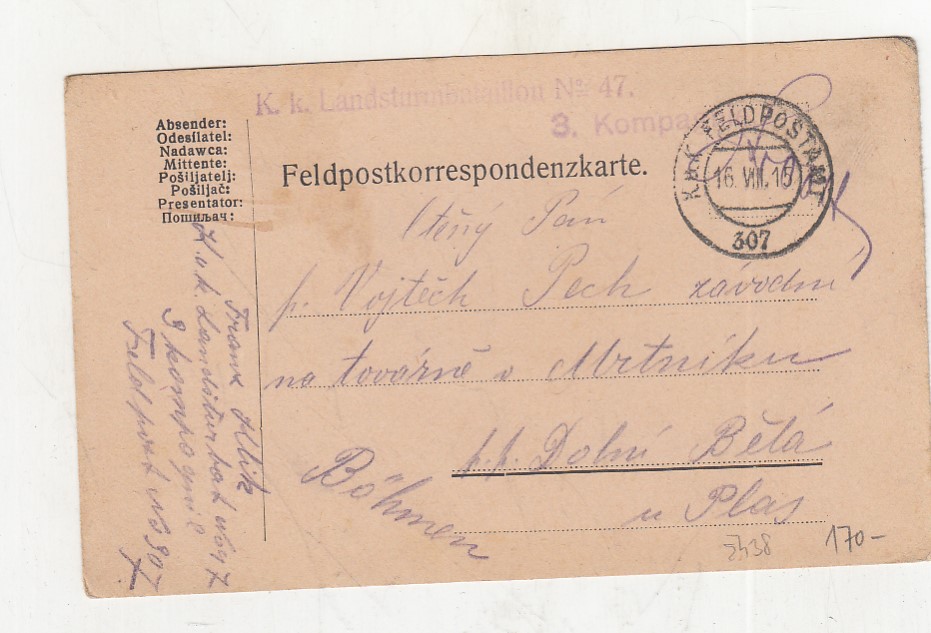 K. k. Landsturmbataillon No 47.
3. Kompa
K.u.K. FELDPOSTAMT
16. VIII. 15
307
Absender:
Odesílatel:
Nadawca:
Mittente:
Pošiljatelj:
Pošiljač:
Presentator:
Пошиљач:
Feldpostkorrespondenzkarte.
Ctěný Pán
p. Vojtěch Pech závodní
na továrně v Mrtníku
p.p. Dolní Bělá
u Plas
Böhmen
Frank
K. u. k. Landsturbat No 47
3 kompagnie
Feldpost No 307
3438
170-